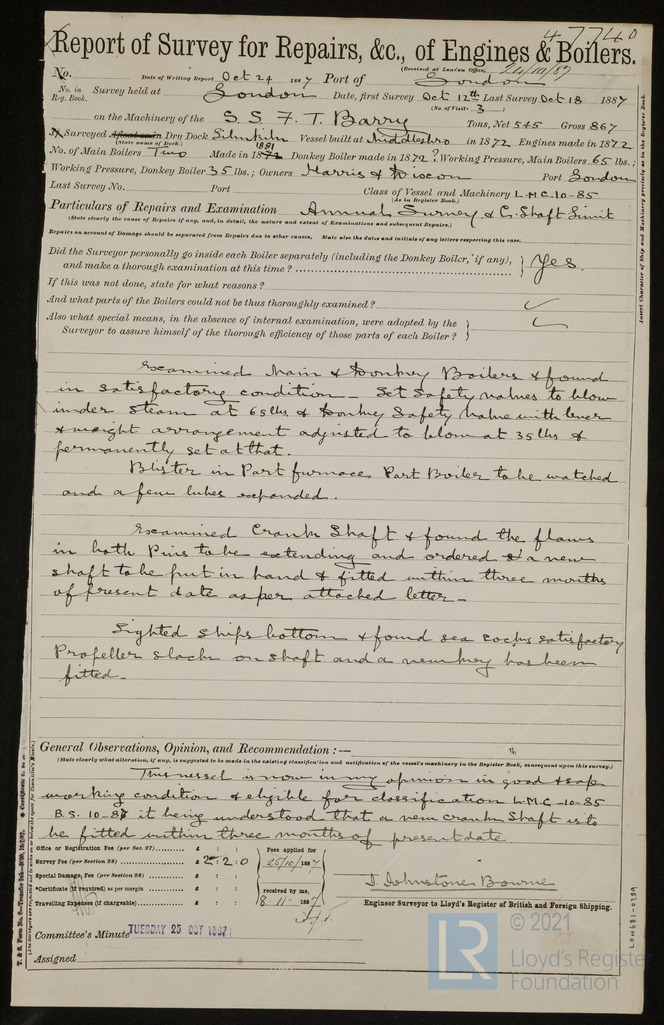 47740
Report of Survey for Repairs, &c., of Engines & Boilers.
(Received at London Office, 24/10/87
No. Date of Writing Report Oct 24 1887 Port of London
No. in Reg. Book. Survey held at London Date, first Survey Oct 12th Last Survey Oct 18 1887
(No. of Visits 3)
on the Machinery of the S.S. F. T. Barry Tons, Net 545 Gross 867
Surveyed Afloat or in Dry Dock Vessel built at Middlesbro in 1872 Engines made in 1872
(State name of Dock.)
No. of Main Boilers Two Made in 1881 Donkey Boiler made in 1872?; Working Pressure, Main Boilers 65 lbs.;
Working Pressure, Donkey Boiler 35 lbs.; Owners Harris & Dixon Port London
Last Survey No. Port Class of Vessel and Machinery L.M.C. 10-85
(As in Register Book.)
Particulars of Repairs and Examination Annual Survey & C. Shaft Limit
(State clearly the cause of Repairs if any, and, in detail, the nature and extent of Examinations and subsequent Repairs.)
Repairs on account of Damage should be separated from Repairs due to other causes. State also the dates and initials of any letters respecting this case.
Did the Surveyor personally go inside each Boiler separately (including the Donkey Boiler, if any), and make a thorough examination at this time? Yes.
If this was not done, state for what reasons?
And what parts of the Boilers could not be thus thoroughly examined?
Also what special means, in the absence of internal examination, were adopted by the Surveyor to assure himself of the thorough efficiency of those parts of each Boiler?
Examined Main & Donkey Boilers & found
in satisfactory condition - Set Safety valves to blow
under steam at 65 lbs & Donkey Safety Valve with lever
& weight arrangement adjusted to blow at 35 lbs &
permanently set at that.
Blister in Port furnace Port Boiler to be watched
and a few tubes expanded.
Examined Crank Shaft & found the flaws
in both Pins to be extending and ordered a new
shaft to be put in hand & fitted within three months
of present date as per attached letter -
Sighted ships bottom & found sea cocks satisfactory
Propeller slack on shaft and a new key has been
fitted.
General Observations, Opinion, and Recommendation :—
(State clearly what alteration, if any, is suggested to be made in the existing classification and notification of the vessel's machinery in the Register Book, consequent upon this survey.)
This vessel is now in my opinion in good & safe
working condition & eligible for classification L.M.C. 10-85
B.S. 10-87 it being understood that a new crank Shaft is to
be fitted within three months of present date.
Office or Registration Fee (per Sec. 27)... £ : :
Survey Fee (per Section 28) £ 2 : 2 : 0
Special Damage Fee (per Section 28) £ : :
*Certificate (if required) as per margin £ : :
Travelling Expenses (if chargeable) £ : :
Fees applied for
25/10/1887
received by me,
18.11.1887
J. Johnstone Bourne
Engineer Surveyor to Lloyd's Register of British and Foreign Shipping.
Committee's Minute TUESDAY 25 OCT 1887
Assigned
Insert Character of Ship and Machinery precisely as in the Register Book.
LON681-0289
© 2021
LR
Lloyd's Register
Foundation